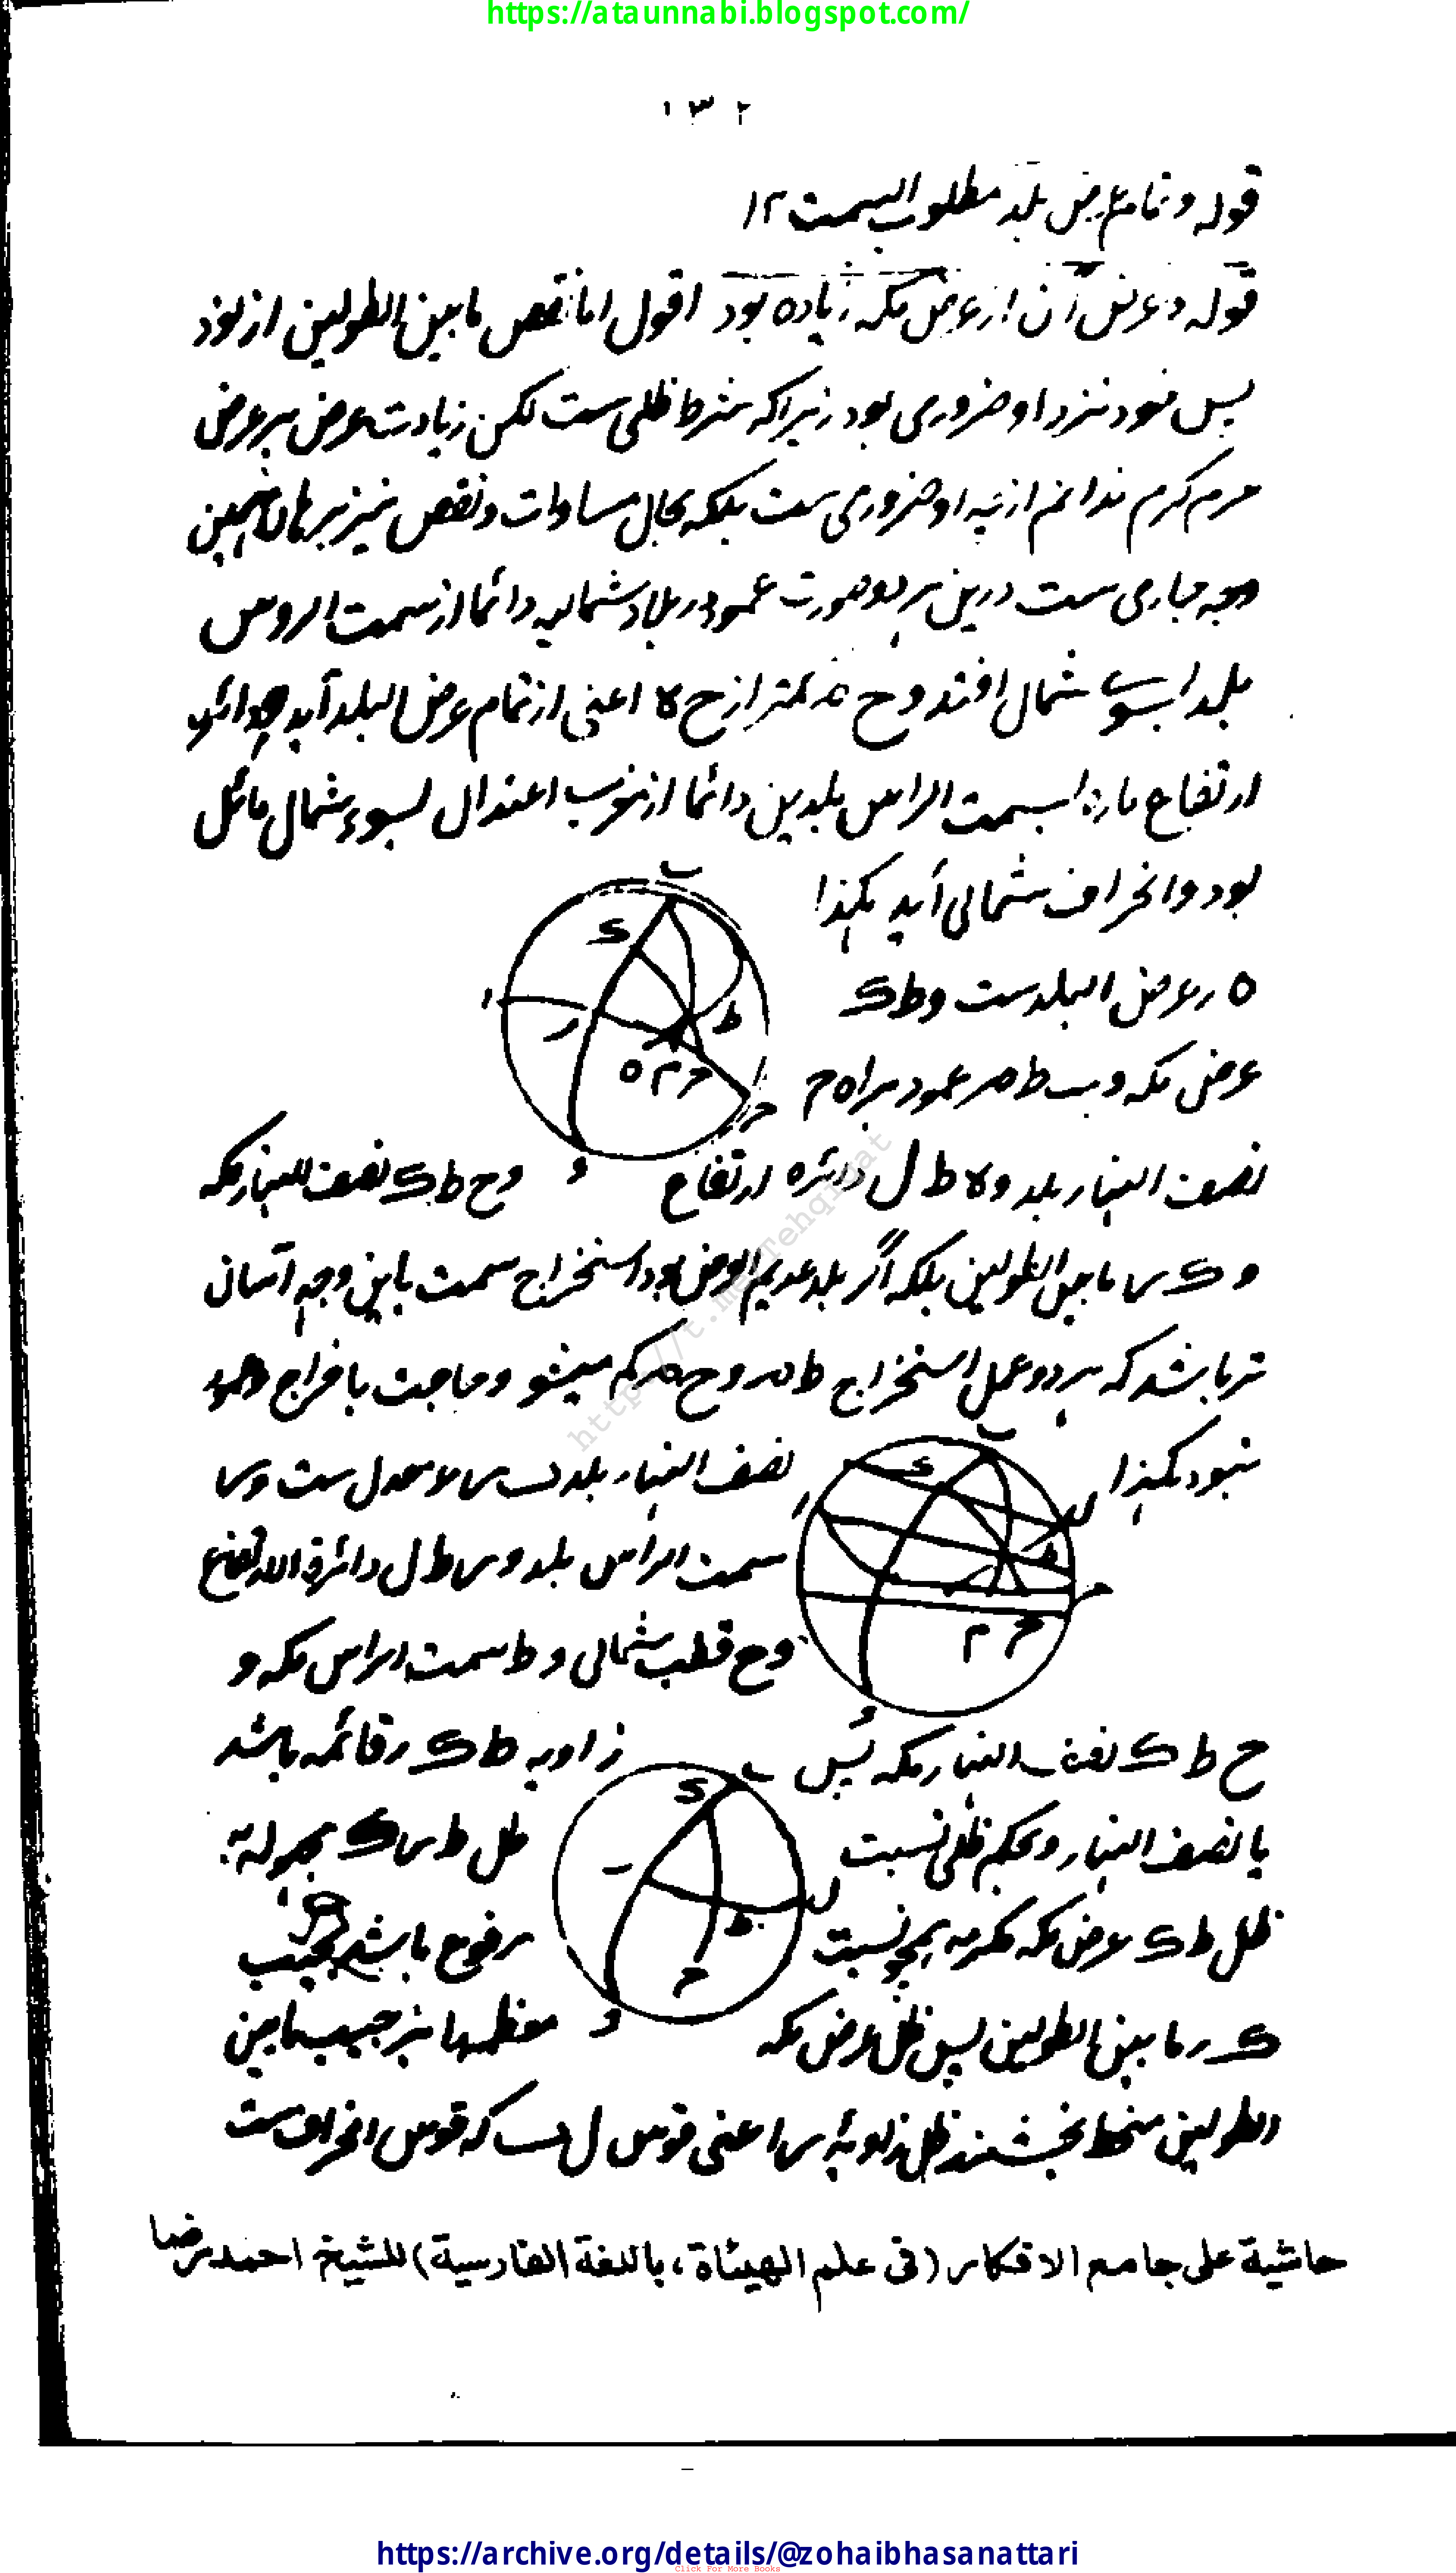 https://ataunnabi.blogspot.com/
۱۳۲
قوله و تمام عرض بلد مطلوب السمت ۱۲
قوله و عرض آن از عرض مکه زیاده بود اقول اما نقص مابین الطولین از نود
پس خود نزد او ضروری بود زیراکه شرط ظلی ست لکن زیادت عرض بر عرض
حرم مکرم ندانم از چه او ضروری ست بلکه بحال مساوات و نقص نیز برهان بهمین
وجه جاری ست درین هر دو صورت عمود در بلاد شمالیه دائما از سمت الروس
بلد بسوے شمال افتد و ح م کمتر از ح ه اعنی از تمام عرض البلد آید و دائره
ارتفاع ماره بسمت الراس بلدین دائما از مغرب اعتدال بسوے شمال مائل
بود و انحراف شمالی آید هکذا
ب
ی
ا
ر
ط
ه م ح
ح
ه ر عرض البلدست و ط ک
عرض مکه و ط م عمود بر ا ه ح
نصف النهار بلد و ه ط ل دائره ارتفاع
و
و ح ط ک نصف النهار مکه
و ک ر مابین الطولین بلکه اگر بلد عدیم العرض بود استخراج سمت باین وجه آسان
تر باشد که هر دو عمل استخراج ط م و ح م کم میشو و حاجت باخراج عمود
نبود هکذا
ب
ی
ل
ا
ط
ح
م ح
و
نصف النهار بلد ر معدل ست و ر
سمت الراس بلد و ر ط ل دائرة الارتفاع
و ح قطب شمالی و ط سمت الراس مکه و
ح ط ک نصف النهار مکه پس
زاویه ط ک ر قائمه باشد
ب
ی
ر
ل
ط
ح
و
یا نصف النهار و بحکم ظلی نسبت
ظل ط ر ک مجهوله به
ظل ط ک عرض مکه مکرمه همچو نسبت
مرفوع باشد بجیب
ک ر مابین الطولین پس ظل عرض مکه
منحطها بر جیب مابین
الطولین منحط بخشند ظل زاویه ر اعنی قوس ل ب که قوس انحراف ست
حاشية على جامع الافكار (فى علم الهيئاة، باللغة الفارسية) للشيخ احمد رضا
http://t.me/Tehqiqat
https://archive.org/details/@zohaibhasanattari
Click For More Books